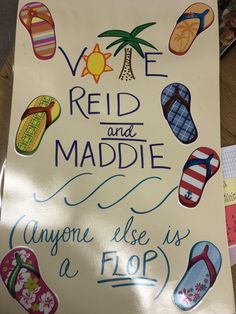 VOTE
REID
and
MADDIE
(anyone else is
a FLOP)